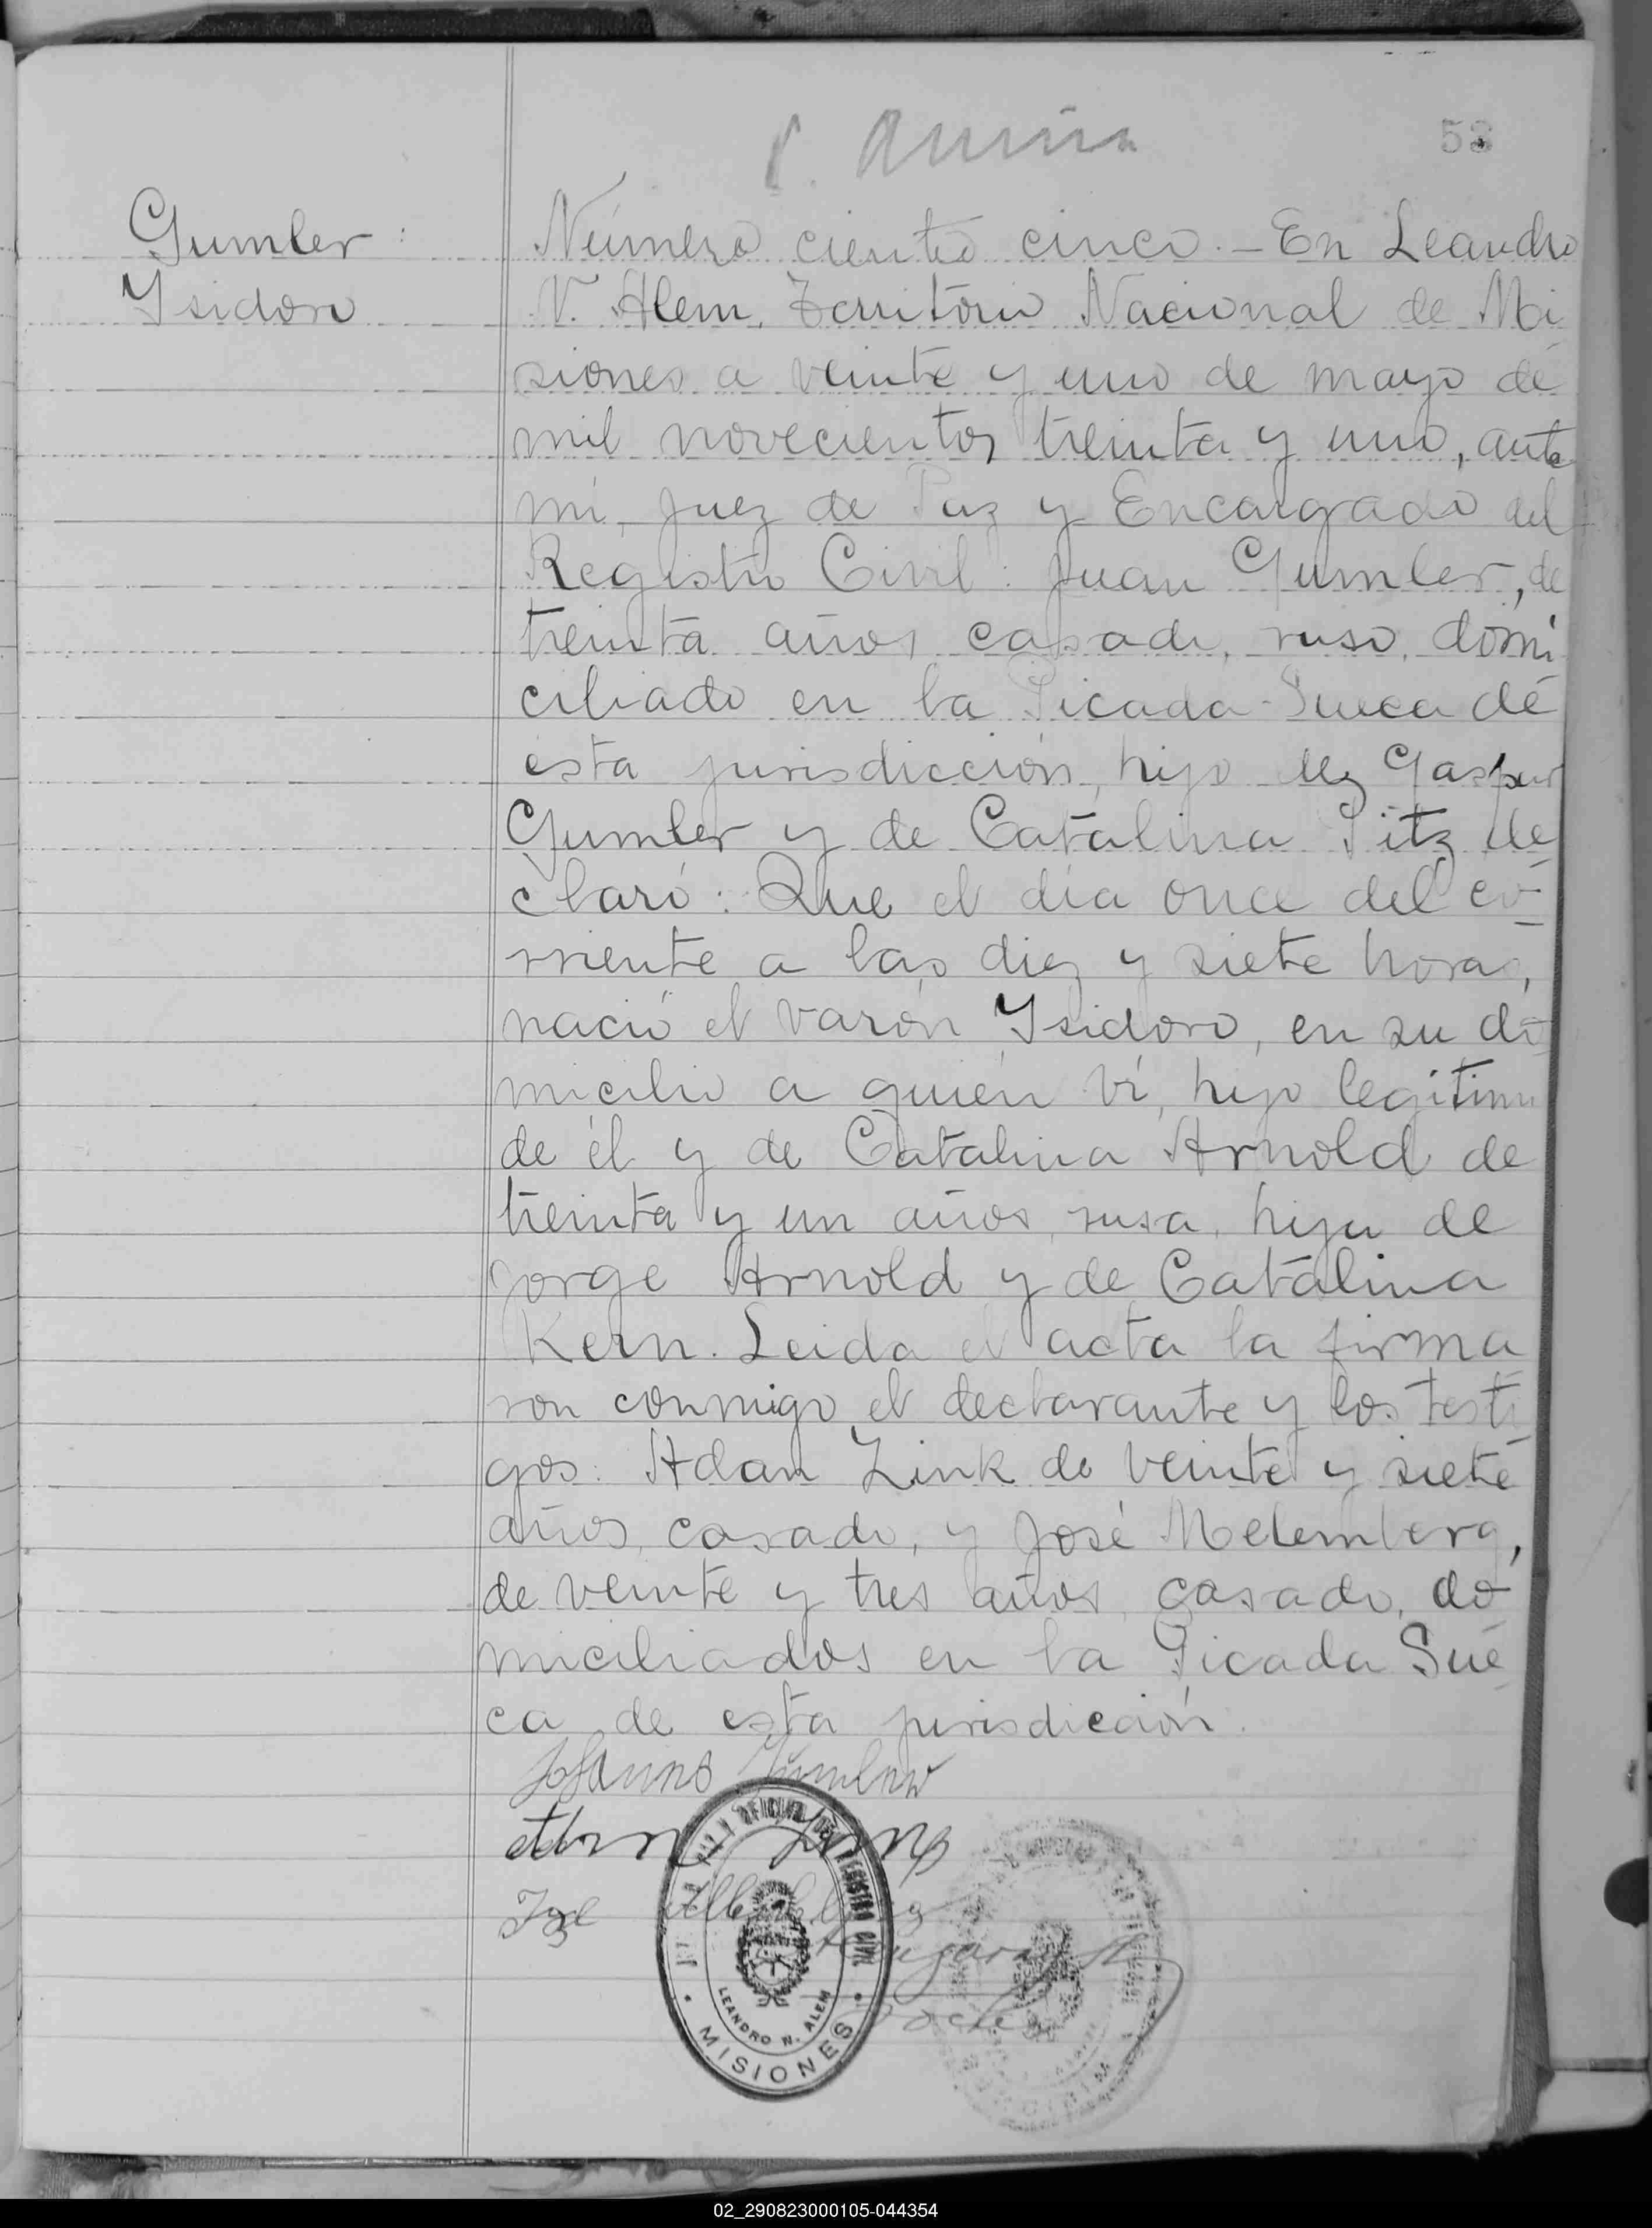 53
Gumler
Isidoro
Número ciento cinco.- En Leandro
N. Alem, Territorio Nacional de Mi
siones a veinte y uno de mayo de
mil novecientos treinta y uno, ante
mi Juez de Paz y Encargado del
Registro Civil: Juan Gumler, de
treinta años casado, ruso, domi
ciliado en la Picada Sueca de
esta jurisdicción, hijo de Gaspar
Gumler y de Catalina Pitz de
claró: Que el día once del co-
rriente a las diez y siete horas,
nació el varón Ysidoro, en su do
micilio a quién ví, hijo legitimo
de él y de Catalina Arnold de
treinta y un años, rusa, hija de
Jorge Arnold y de Catalina
Kern. Leida el acta la firma
ron conmigo el declarante y los testi
gos: Adan Zink de veinte y siete
años, casado, y José Melemberg,
de veinte y tres años, casado, do
miciliados en la Picada Sue
ca de esta jurisdicción.
Johannes Gumler
OFICINA DEL REGISTRO CIVIL
LEANDRO N. ALEM
MISIONES
02_290823000105-044354